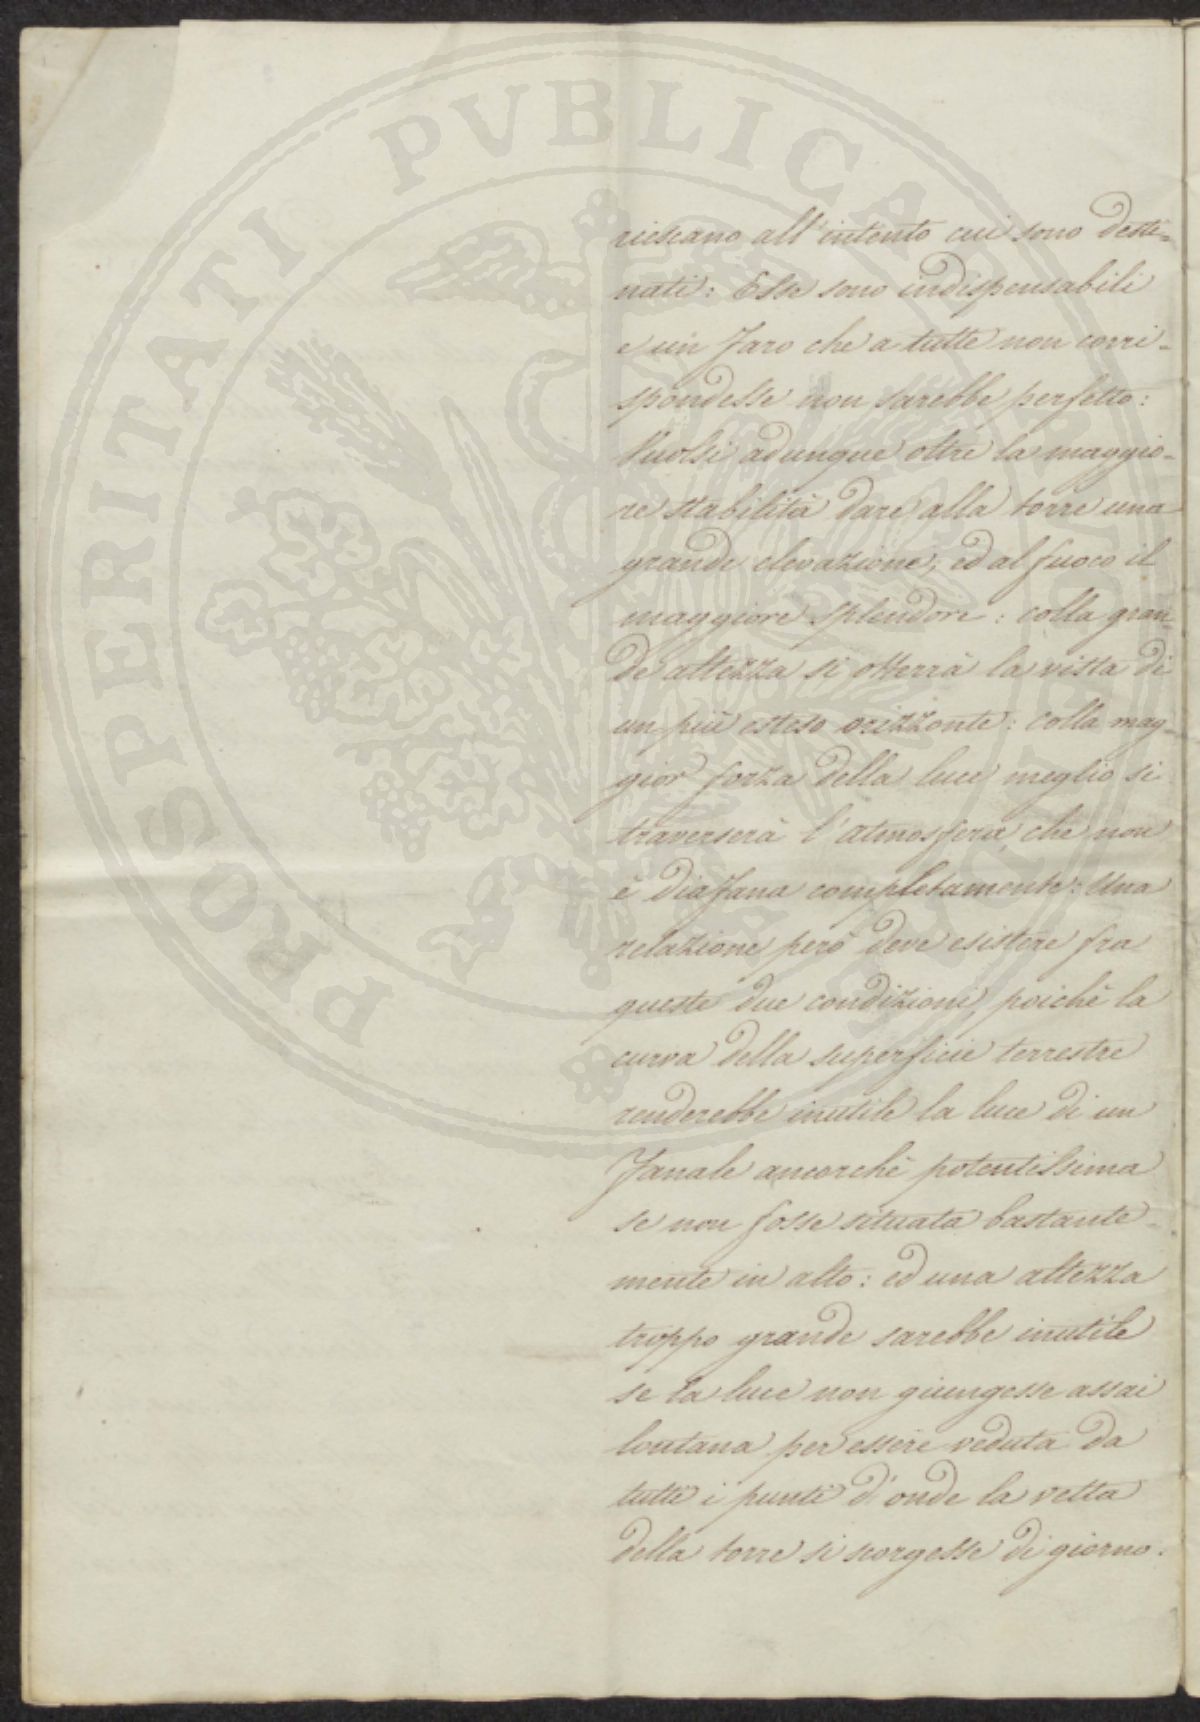 PROSPERITATI PVBLICAE
riescano all'intento cui sono desti-
nati: Esse sono indispensabili
e un Faro che a tutte non corri-
spondesse non sarebbe perfetto:
Vuolsi adunque oltre la maggio-
re stabilità dare alla torre una
grande elevazione, ed al fuoco il
maggiore splendore: colla gran-
de altezza si otterrà la vista di
un più esteso orizzonte: colla mag-
gior forza della luce meglio si
traverserà l'atmosfera che non
è diafana completamente: Una
relazione però deve esistere fra
queste due condizioni, poichè la
curva della superficie terrestre
renderebbe inutile la luce di un
Fanale ancorchè potentissima
se non fosse situata bastante-
mente in alto: ed una altezza
troppo grande sarebbe inutile
se la luce non giungesse assai
lontana per essere veduta da
tutti i punti d'onde la vetta
della torre si scorgesse di giorno.